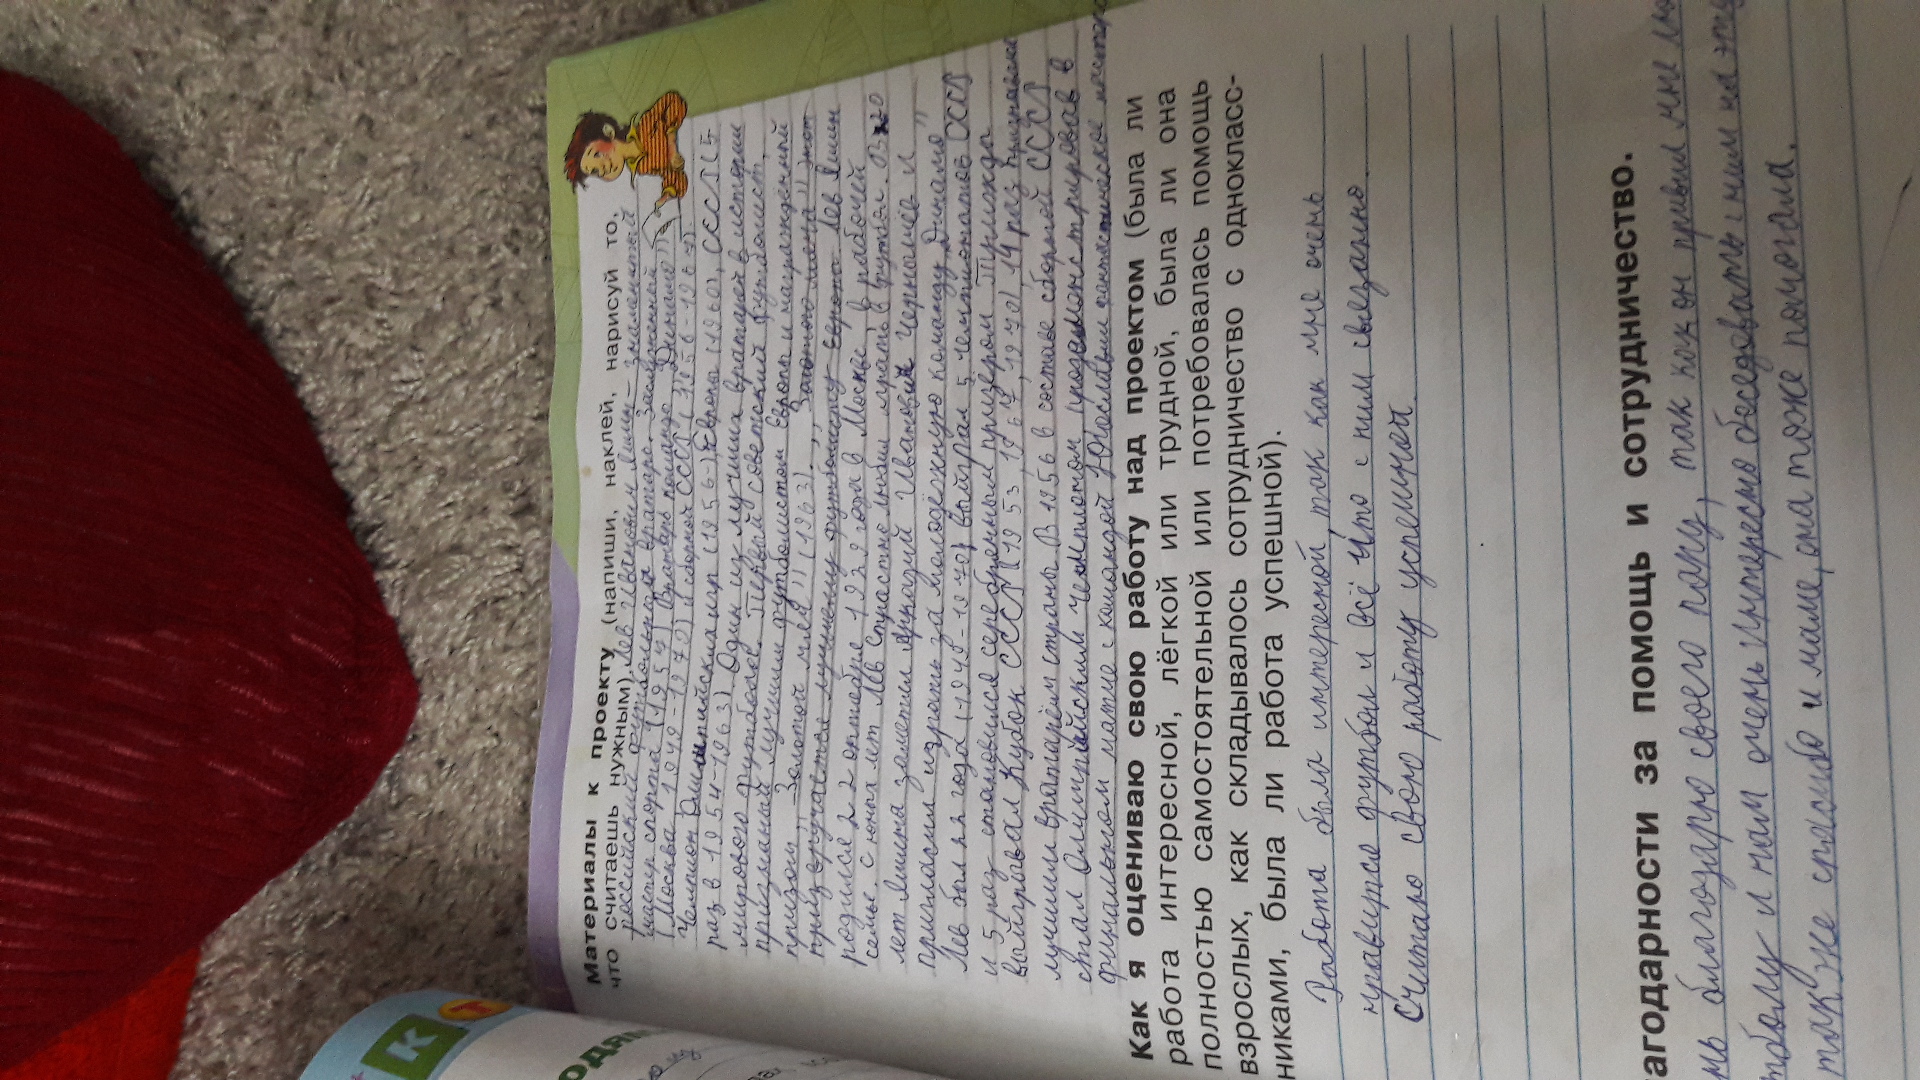 Материалы к проекту (напиши, наклей, нарисуй то,
что считаешь нужным). Лев Иванович Яшин – знаменитый
российский футбольный вратарь. Заслуженный
мастер спорта (1957) Вратарь команды "Динамо"
(Москва, 1949-1970) и сборной СССР (
Чемпион Олимпийских игр (1956), Европы (1960), СССР (5
раз в 1954-1963) Один из лучших вратарей в истории
мирового футбола. Первый советский футболист,
признанный лучшим футболистом Европы и награжденный
призом "Золотой мяч" (1963). "Золотого мяча"
приз вручается лучшему футболисту Лев Яшин
родился 22 октября 1929 года в Москве в рабочей
семье. С юных лет Лев страстно любил играть в футбол.
лет Яшина заметил Аркадий Иванович Чернышев и
пригласил играть за молодёжную команду "Динамо"
Лев был
и 5 раз становился серебряным призером Трижды
выигрывал Кубок СССР (1953, 1967, 1970) 14 раз
лучшим вратарём страны. В 1956 в составе сборной СССР
стал Олимпийским чемпионом, продемонстрировав в
финальном матче с командой Югославии
Как я оцениваю свою работу над проектом (была ли
работа интересной, лёгкой или трудной, была ли она
полностью самостоятельной или потребовалась помощь
взрослых, как складывалось сотрудничество с однокласс-
никами, была ли работа успешной).
Работа была интересной, так как мне очень
нравится футбол и всё что с ним связанно.
Считаю свою работу успешной.
агодарности за помощь и сотрудничество.
благодарю своего папу, так как он привил мне
и нам очень интересно беседовать с ним на
также спасибо и маме, она тоже помогала.
К
1